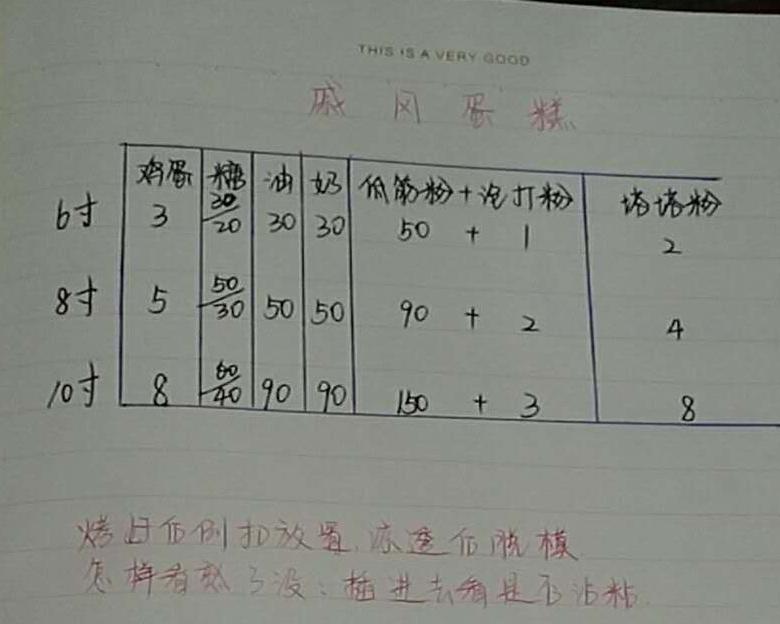 THIS IS A VERY GOOD
戚风蛋糕
鸡蛋 糖 油 奶 低筋粉+泡打粉 塔塔粉
6寸 3 30/20 30 30 50 + 1 2
8寸 5 50/30 50 50 90 + 2 4
10寸 8 60/40 90 90 150 + 3 8
烤好后倒扣放置,凉透后脱模
怎样看熟了没:插进去看是否沾粘.